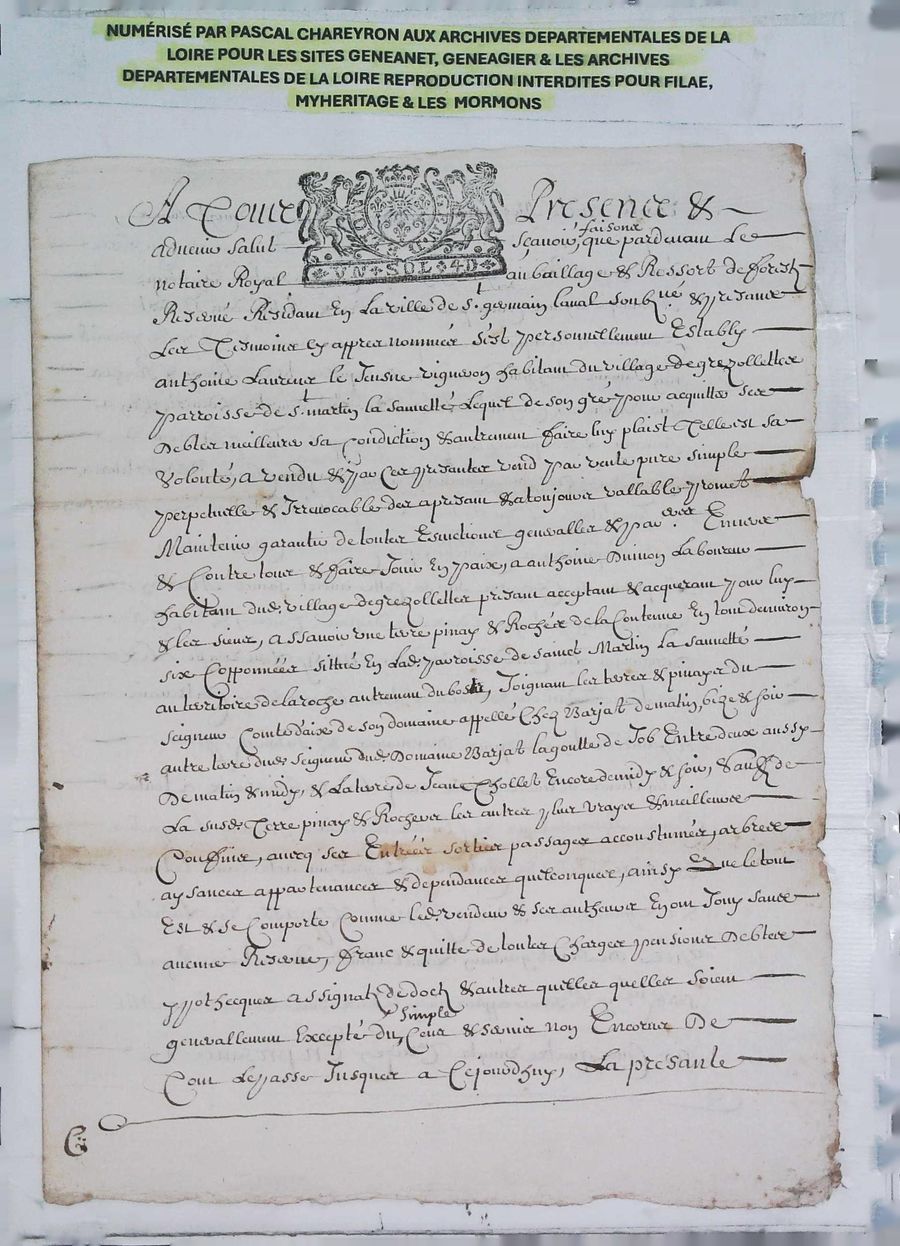 NUMÉRISÉ PAR PASCAL CHAREYRON AUX ARCHIVES DEPARTEMENTALES DE LA
LOIRE POUR LES SITES GENEANET, GENEAGIER & LES ARCHIVES
DEPARTEMENTALES DE LA LOIRE REPRODUCTION INTERDITES POUR FILAE,
MYHERITAGE & LES MORMONS
A Tous Presens &
faisons
advenir salut sçavoir, que pardevant Le
VN SOL 4D
notaire Royal au baillage & Ressort de forestz
Reservé Residant En La ville de St germain Laval soubzné & presans
Les Tesmoins cy appres nommés s'est personnellement Estably
anthoine Laurens le Jeusne vigneron habitant du village de grezollettes
parroisse de St martin la sauvetté, Lequel de son gré pour acquitter ses
Debtes meilleurer sa Condiction & autrement faire luy plaist Telle est sa
Volonté, a vendu & par Ces presantes vend par vente pure simple
perpetuelle & Irrevocable des apresant & atoujours vallable promet
Maintenir garantir de toutes Esvictions generalles & par eres Envers
& Contre tous & faire Jouir En paix, a anthoine Duinon Laboureur
habitant dud village de grezollettes presant acceptant & acquerant pour luy
& les siens, assavoir une terre pinay & Rochés de la Contenue En tout denviron
six Copponnées sittué En Lade parroisse de sainct Martin La sauvetté
au territoire de la roche autrement du bost, Joignant les terres & pinays du
seigneur Comte daix de son domaine appellé Chez Barjat de matin, bize & soir
autre terre dud seigneur dud Domaine Barjat la goutte de Job Entre deux aussy
De matin & midy, & La terre de Jean Chollet Encore de midy & soir, & sauf de
La susde Terre pinay & Rochers les autres plus vrays & meilleures
Confins, avecq ses Entrées sorties passages accoustumés, arbres
aysances appartenances & dependances quelconques, ainsy que le tout
Est & se Comporte Comme led vendeur & ses autheurs En ont Jouy sans
aucune Reserve, franc & quitte de toutes Charges pensions Debtes
ypothecques assignatz de dotz & autres quelles quelles soient
simple
generallement Excepté du Cens & servis non Encourus De
Tout Le passé Jusques a Cejourdhuy, La presante